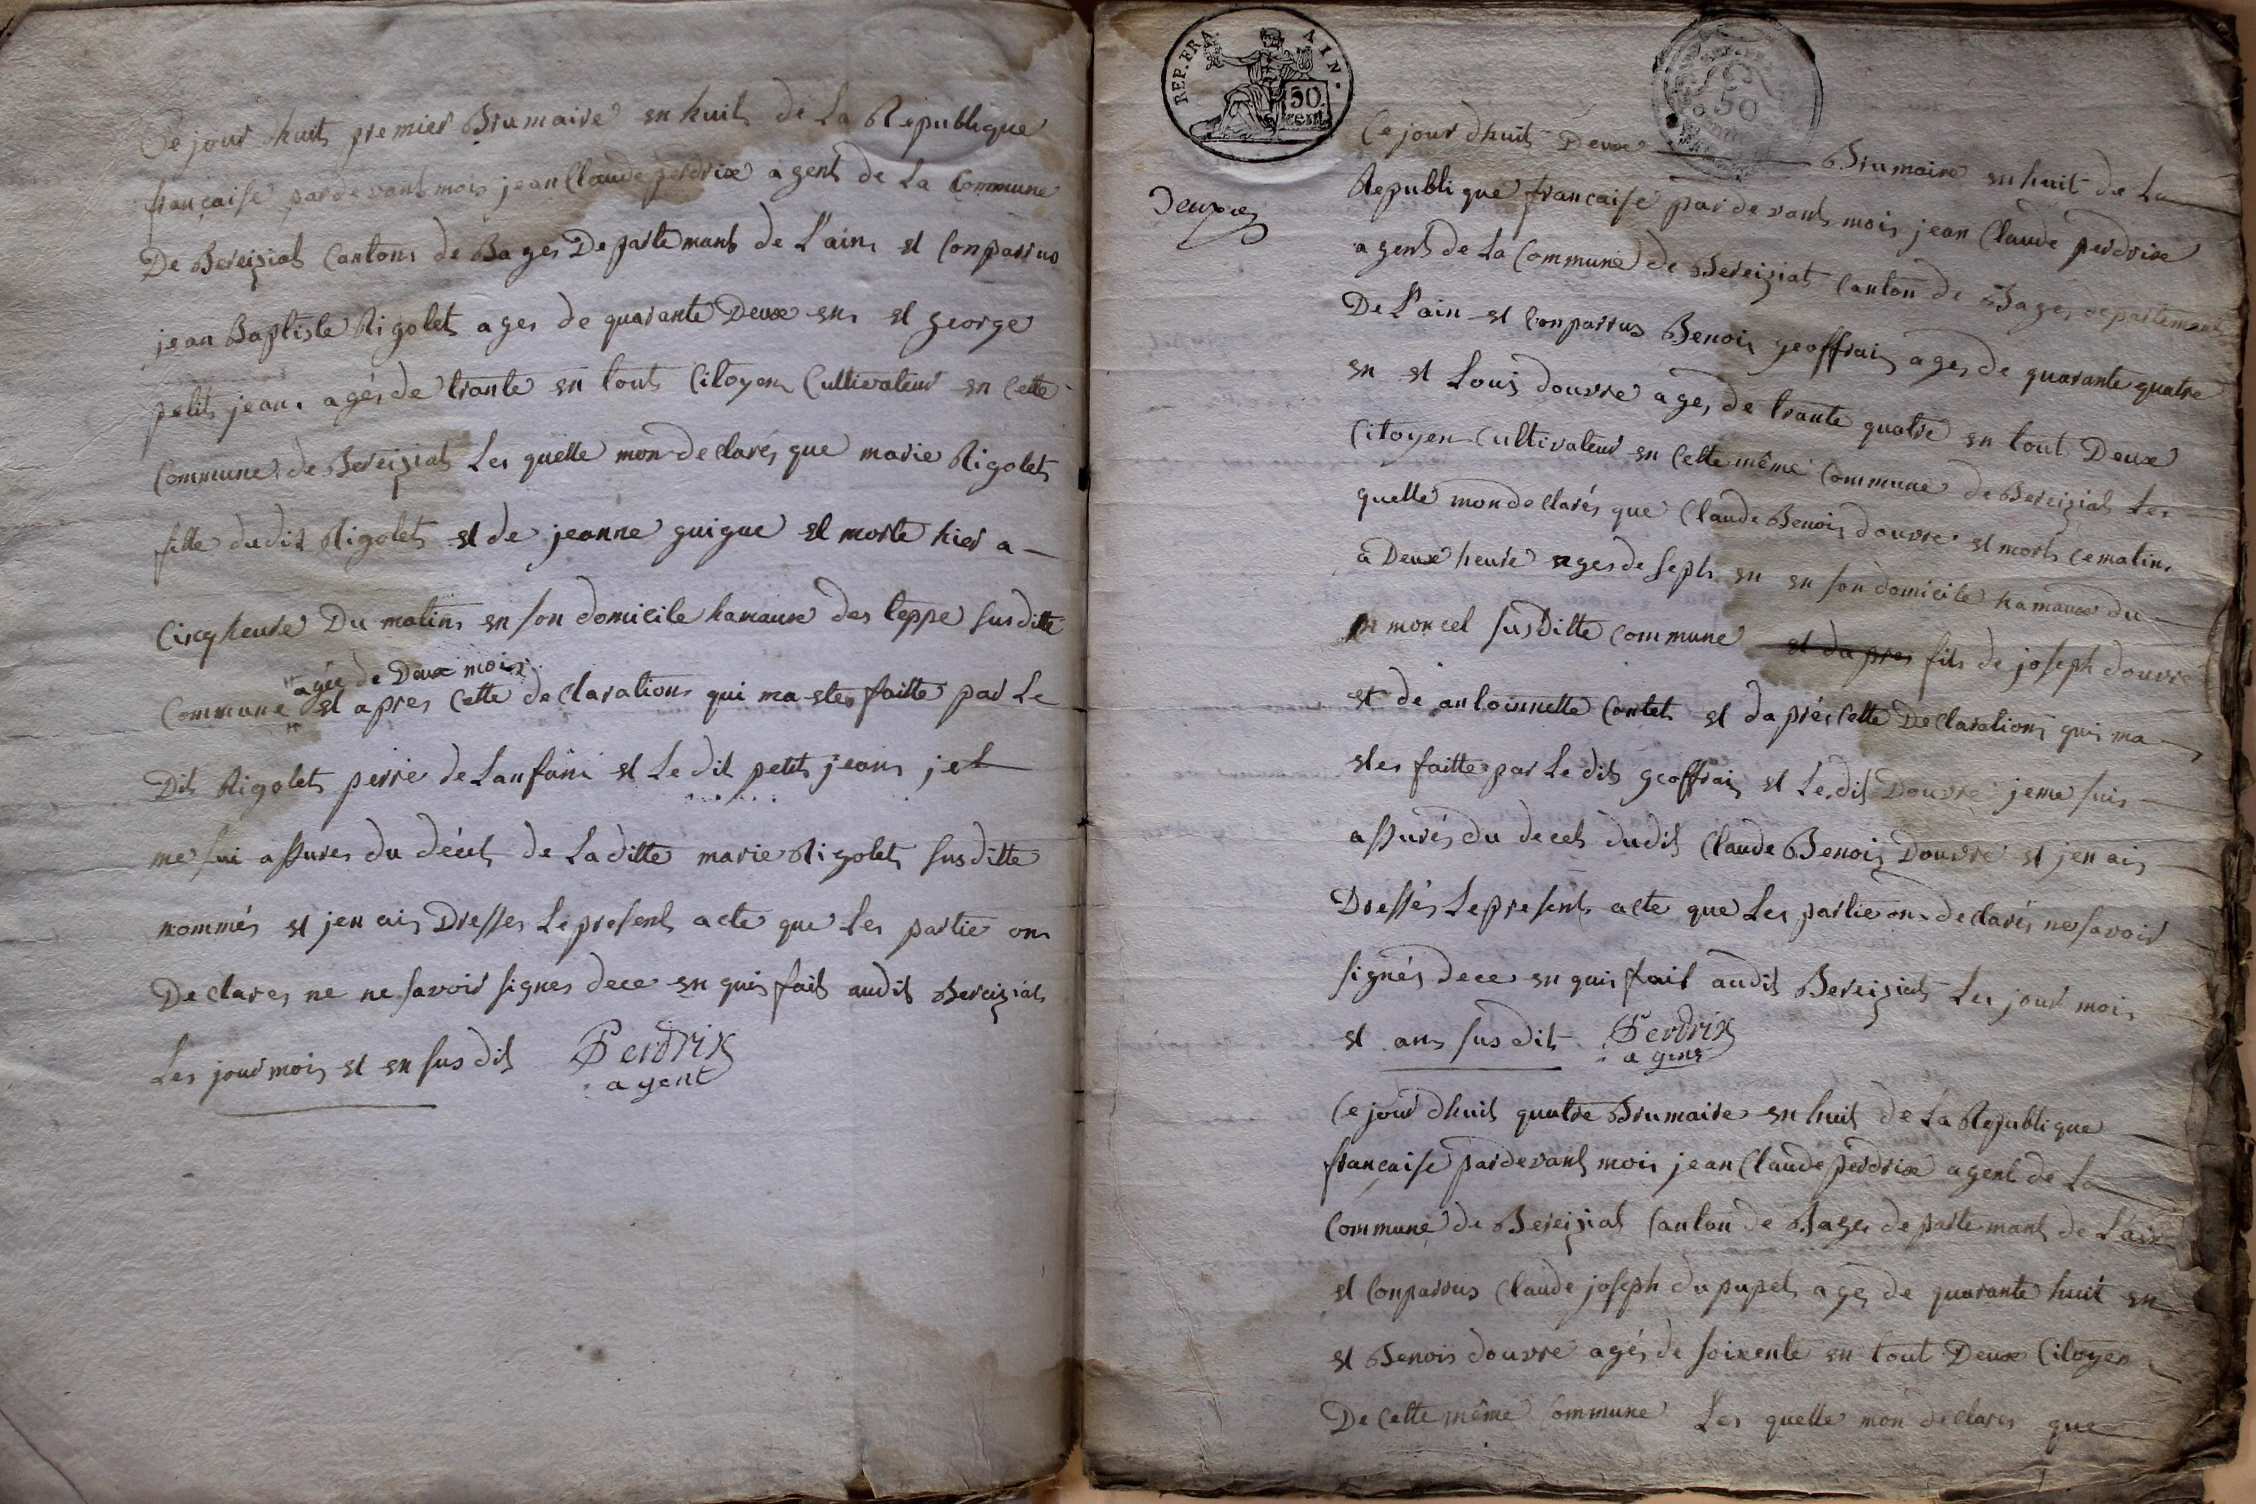 Ce jour huit premier Brumaire en huit de La Republique
française pardevant moi jean Claude perdrix agent de La Commune
De Bereiziat Canton de Bages Departemant de L'ain et Conparrus
jean Baptiste Rigolet ages de quarante Deux en et george
petit jean agés de trante en tout Citoyen Cultivateur en Cette
Commune de Bereiziat Les quelle mon declarés que marie Rigolet
fille dudit Rigolet et de jeanne guigue et morte hier a
Cinq heure Du matin en son domicile hamaux des teppe susditte
agée de Deux mois
Commune et apres Cette declaration qui ma etes faitte par Le
Dit Rigolet perre de Lanfan et Le dit petit jean je
me sui assures du décet de Laditte marie Rigolet susditte
nommés et jen ai Dresses Le present acte que Les partie on
Declares ne ne savoir signes dece en quis fait audit Bereiziat
Les jour mois et en susdit Perdrix
agent
REP. FRA. AIN.
50 cent
50
deuxe
Ce jour dhuit Deux Brumaire en huit de La
Republique française pardevant moi jean Claude perdrix
agent de La Commune de Bereiziat Canton de Bages departemant
De L'ain et Conparrus Benoit geoffrai ages de quarante quatre
en et Louis douvre ages de trante quatre en tout Deux
Citoyen Cultivateur en Cette même Commune de Bereiziat Les
quelle mon declarés que Claude Benoit douvre et mort ce matin
a Deux heure ages de sept en en son domicile hamaux du
moncel susditte Commune et dapres fils de joseph douvre
et de antoinnette Contet et daprés Cette Declaration qui ma
etes faitte par Le dit geoffrai et Le dit Douvre je me suis
assurés du decet dudit Claude Benoit Douvre et jen ai
Dressés Le present acte que Les partie on declarés ne savoir
signés dece en quis fait audit Bereiziat Les jour mois
et an susdit Perdrix
agent
Ce jour dhuit quatre Brumaire en huit de La Republique
française pardevant moi jean Claude perdrix agent de La
Commune de Bereiziat Canton de Bages departemant de L'ain
et Conparrus Claude joseph dupupet ages de quarante huit en
et Benoit douvre agés de soixente en tout Deux Citoyen
De Cette même Commune Les quelle mon declares que